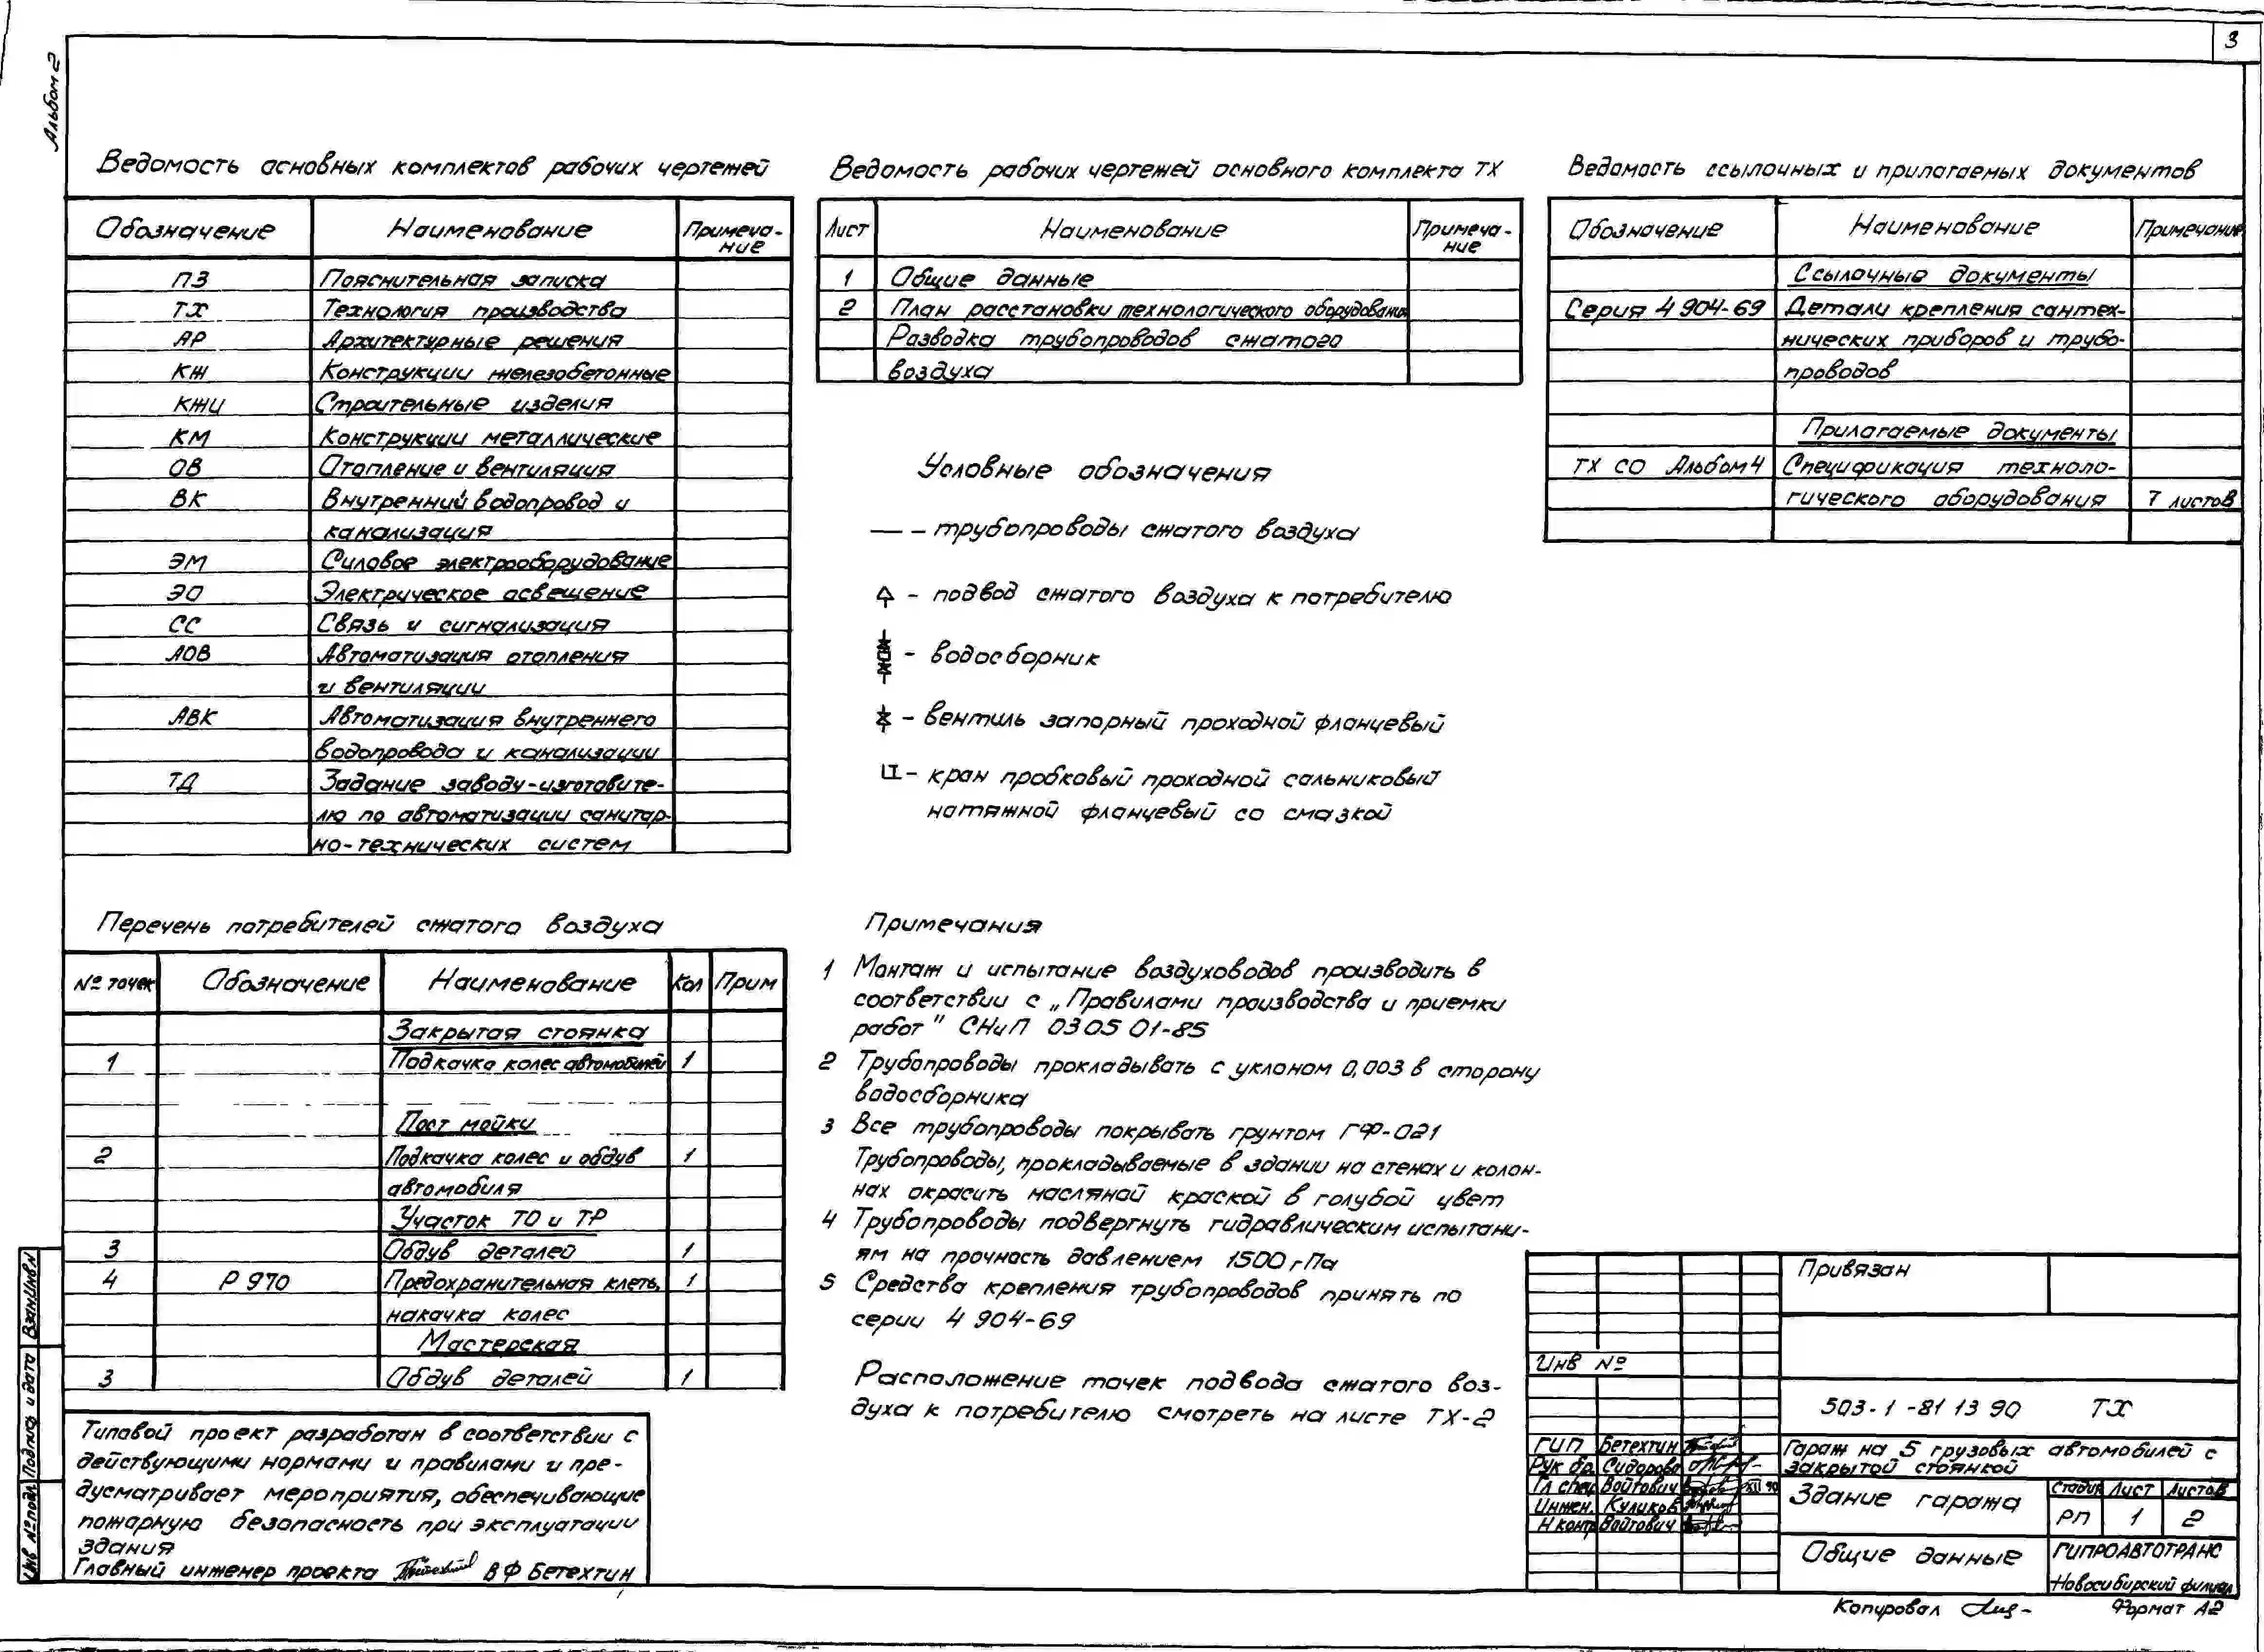 3
Альбом 2
Ведомость основных комплектов рабочих чертежей
Обозначение Наименование Примеча-
ние
ПЗ Пояснительная записка
ТХ Технология производства
АР Архитектурные решения
КЖ Конструкции железобетонные
КЖИ Строительные изделия
КМ Конструкции металлические
ОВ Отопление и вентиляция
ВК Внутренний водопровод и
канализация
ЭМ Силовое электрооборудование
ЭО Электрическое освещение
СС Связь и сигнализация
АОВ Автоматизация отопления
и вентиляции
АВК Автоматизация внутреннего
водопровода и канализации
ТД Задание заводу-изготовите-
лю по автоматизации санитар-
но-технических систем
Ведомость рабочих чертежей основного комплекта ТХ
Лист Наименование Примеча-
ние
1 Общие данные
2 План расстановки технологического оборудования
Разводка трубопроводов сжатого
воздуха
Ведомость ссылочных и прилагаемых документов
Обозначение Наименование Примечание
Ссылочные документы
Серия 4 904-69 Детали крепления сантех-
нических приборов и трубо-
проводов
Прилагаемые документы
ТХ СО Альбом 4 Спецификация техноло-
гического оборудования 7 листов
Условные обозначения
— – трубопроводы сжатого воздуха
– подвод сжатого воздуха к потребителю
– водосборник
– вентиль запорный проходной фланцевый
– кран пробковый проходной сальниковый
натяжной фланцевый со смазкой
Перечень потребителей сжатого воздуха
№ точек Обозначение Наименование Кол Прим
Закрытая стоянка
1 Подкачка колес автомобилей 1
Пост мойки
2 Подкачка колес и обдув 1
автомобиля
Участок ТО и ТР
3 Обдув деталей 1
4 Р 970 Предохранительная клеть, 1
накачка колес
Мастерская
3 Обдув деталей 1
Примечания
1 Монтаж и испытание воздуховодов производить в
соответствии с „Правилами производства и приемки
работ" СНиП 03 05 01-85
2 Трубопроводы прокладывать с уклоном 0,003 в сторону
водосборника
3 Все трубопроводы покрывать грунтом ГФ-021
Трубопроводы, прокладываемые в здании на стенах и колон-
нах окрасить масляной краской в голубой цвет
4 Трубопроводы подвергнуть гидравлическим испытани-
ям на прочность давлением 1500 гПа
5 Средства крепления трубопроводов принять по
серии 4 904-69
Расположение точек подвода сжатого воз-
духа к потребителю смотреть на листе ТХ-2
Типовой проект разработан в соответствии с
действующими нормами и правилами и пре-
дусматривает мероприятия, обеспечивающие
пожарную безопасность при эксплуатации
здания
Главный инженер проекта В Ф Бетехтин
Взам.Инв.N
Подпись и дата
Инв № подл
Привязан
Инв №
503-1-81 13 90 ТХ
ГИП Бетехтин
Рук бр. Сидорова
Гл спец Войтович XII 90
Инжен. Куликов
Н контр Войтович
Гараж на 5 грузовых автомобилей с
закрытой стоянкой
Здание гаража
Стадия Лист Листов
РП 1 2
Общие данные
ГИПРОАВТОТРАНС
Новосибирский филиал
Копировал
Формат А2